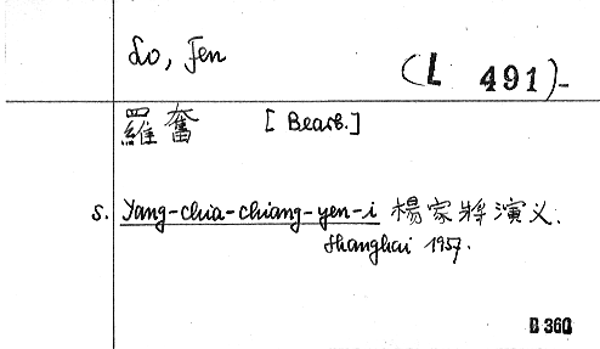 Lo, Fen
(L 491)-
羅奮 [Bearb.]
s. Yang-chia-chiang-yen-i 楊家將演义.
Shanghai 1957.
B 360